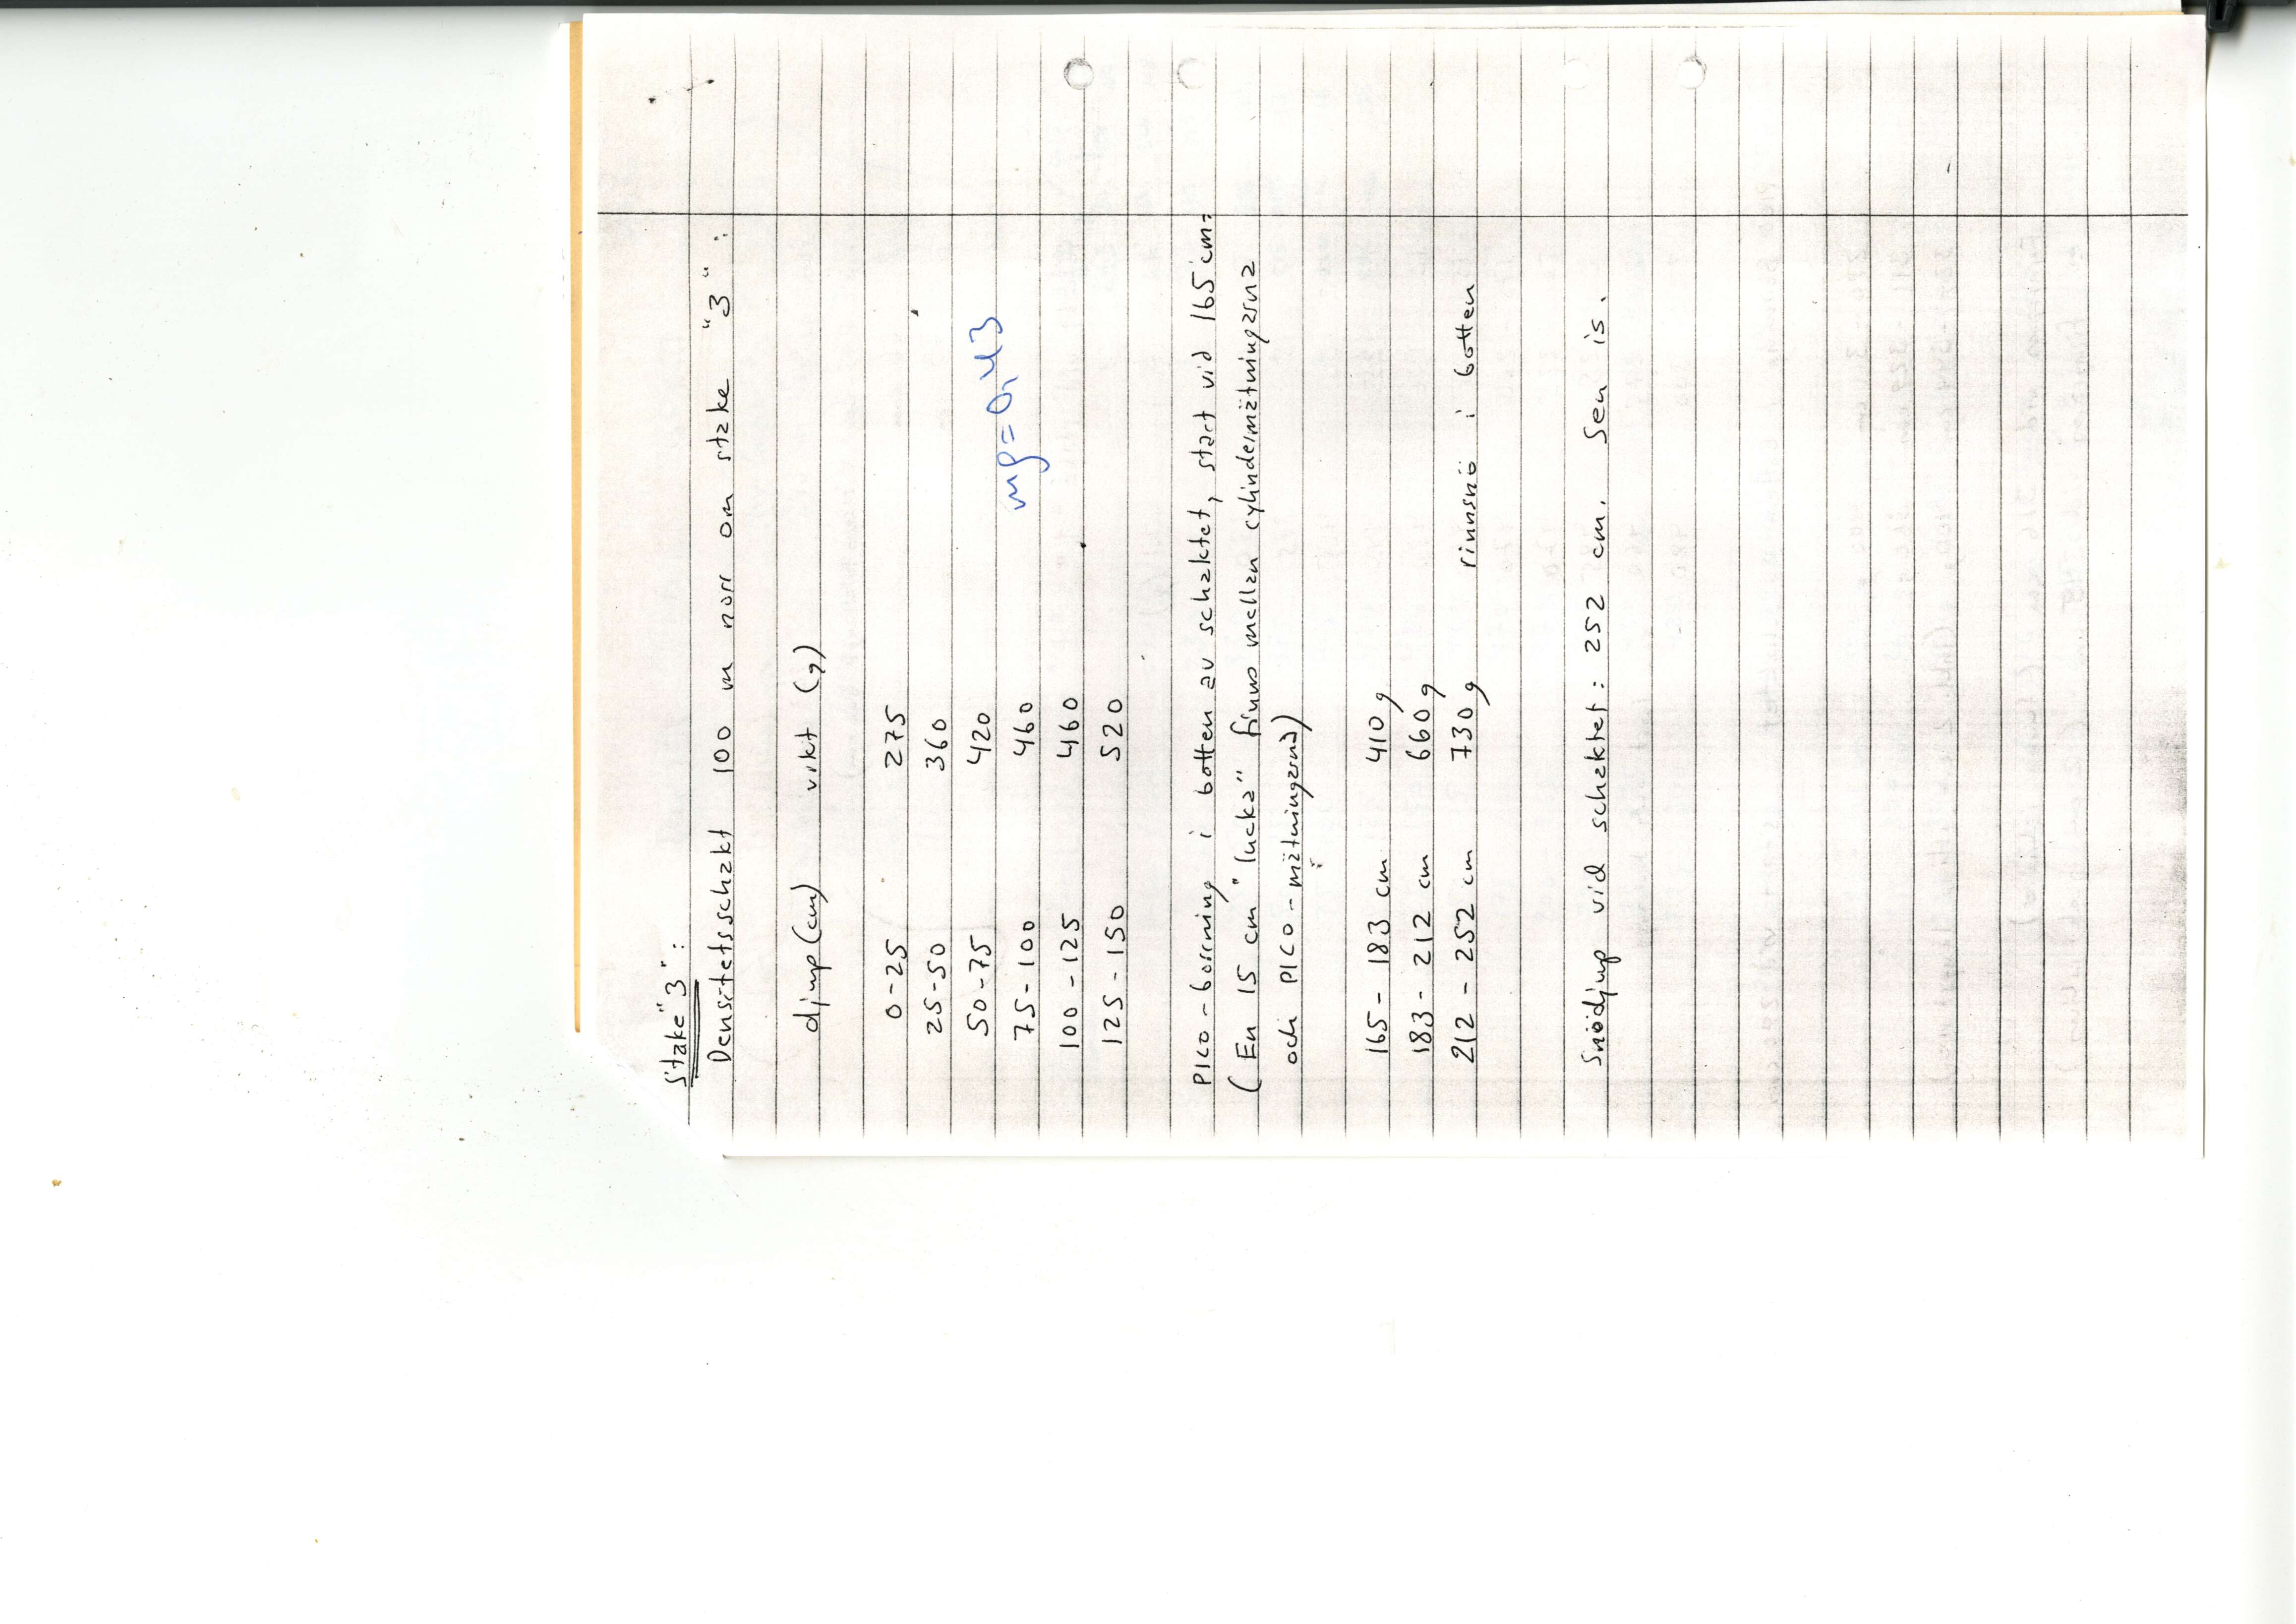 Stake "3" :
Densitetsschakt 100 m norr om stake "3" :
djup (cm) vikt (g)
0-25 275
25-50 360
50-75 420
75-100 460
100-125 460
125-150 520
mρ = 0,43
PICO-borrning i botten av schaktet, start vid 165 cm:
(En 15 cm "lucka" finns mellan cylindermätningarna
och PICO-mätningarna)
165-183 cm 410 g
183-212 cm 660 g
212-252 cm 730 g rinnsnö i botten
Snödjup vid schaktet: 252 cm. Sen is.